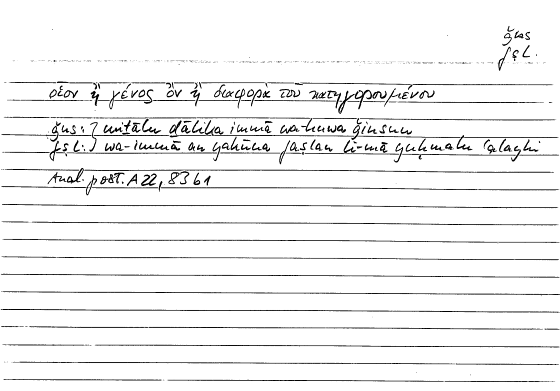 ǧns
fṣl.
οἷον ἢ γένος ὂν ἢ διαφορὰ τοῦ κατηγορουμένου
ǧns: } miṯālu ḏālika immā wa-huwa ǧinsun
fṣl: } wa-immā an yakūna faṣlan li-mā yuḥmalu ʿalayhi
Anal. post. A 22, 83b1